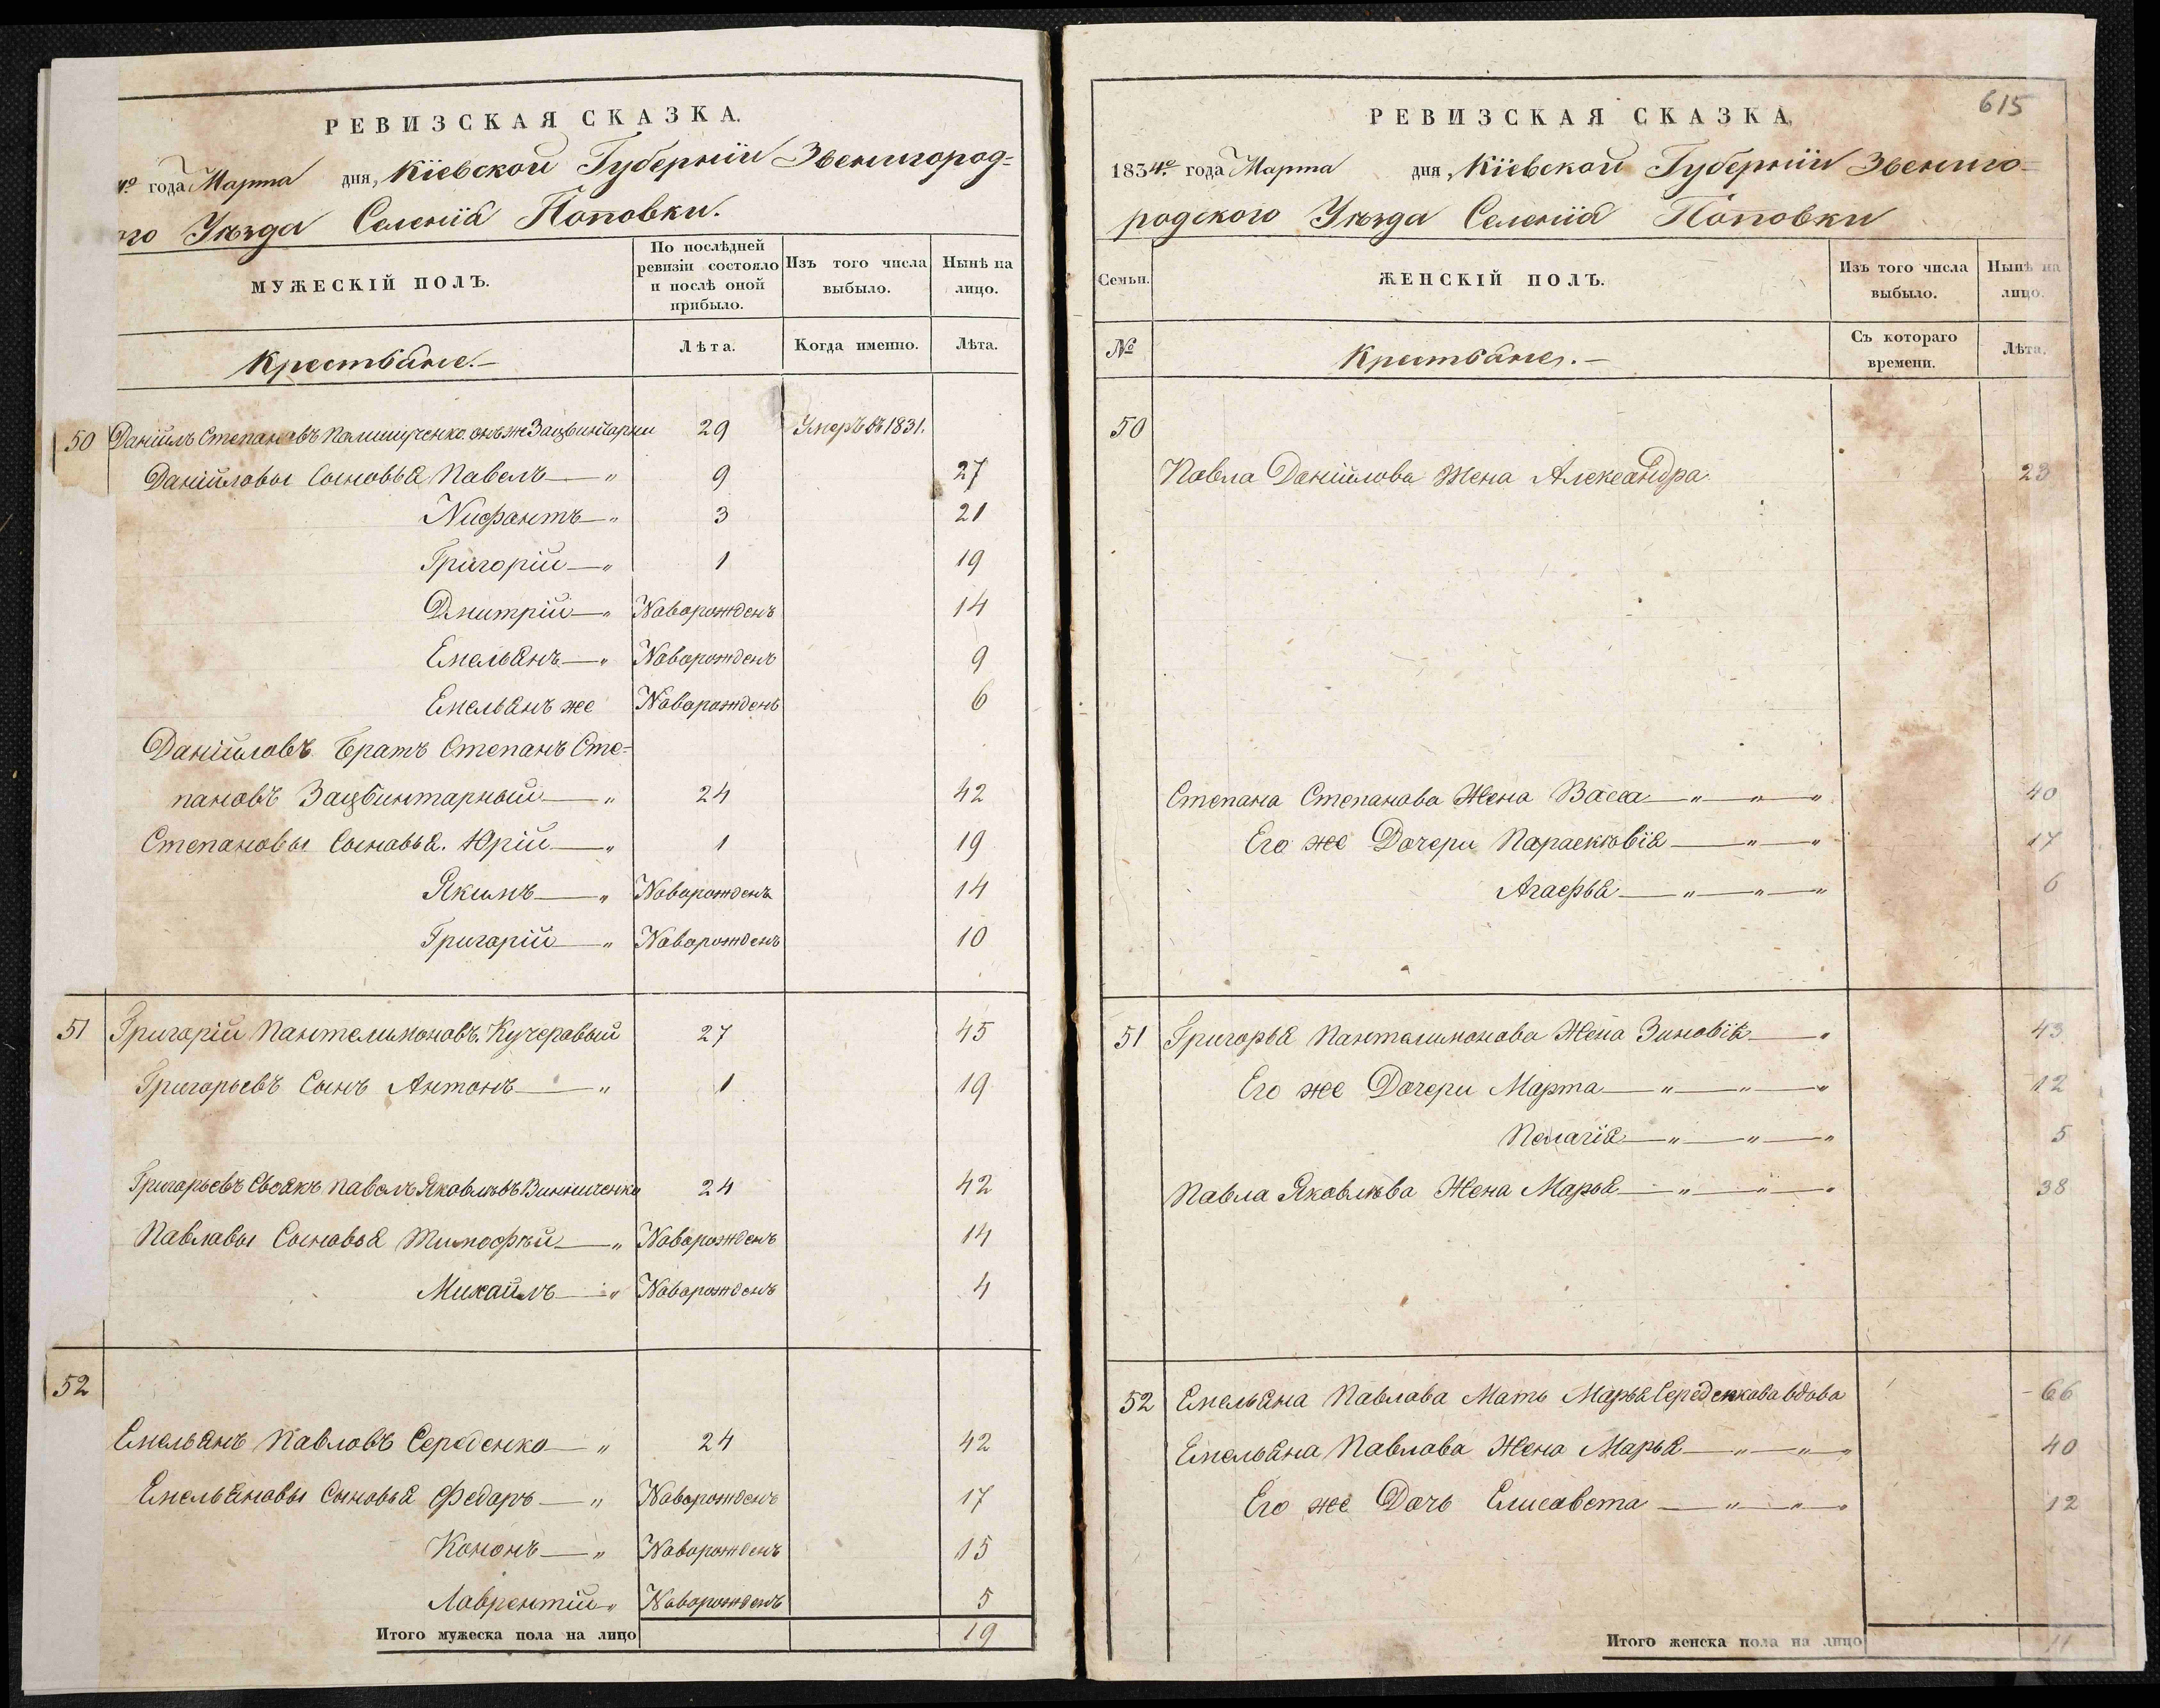 РЕВИЗСКАЯ СКАЗКА.
4го года Марта дня, Кіевской Губерніи Звенигород=
го Уѣзда Селенія Поповки.
МУЖЕСКІЙ ПОЛЪ.
По послѣдней ревизіи состояло и послѣ оной прибыло.
Изъ того числа выбыло.
Нынѣ на лицо.
Крестьяне.—
Лѣта.
Когда именно.
Лѣта.
50 Даніилъ Степановъ онъ же 29 Умеръ въ 1831.
Даніиловы Сыновья Павелъ—„ 9 27
Нифантъ—„ 3 21
Григорій—„ 1 19
Дмитрій—„ Новорожденъ 14
Емельянъ—„ Новорожденъ 9
Емельянъ же Новорожденъ 6
Даніиловъ Братъ Степанъ Сте=
пановъ Зацвинтарный—„ 24 42
Степановы Сыновья. Юрій—„ 1 19
Якимъ—„ Новорожденъ 14
Григорій—„ Новорожденъ 10
51 Григорій Пантелимоновъ Кучеравый 27 45
Григорьевъ Сынъ Антонъ—„ 1 19
Григорьевъ Своякъ Павелъ Яковлѣвъ Винниченко 24 42
Павловы Сыновья Тимофѣй—„ Новорожденъ 14
Михаилъ—„ Новорожденъ 4
52
Емельянъ Павловъ Середенко—„ 24 42
Емельяновы Сыновья Федаръ—„ Новорожденъ 17
Кононъ—„ Новорожденъ 15
Лаврентій„ Новорожденъ 5
Итого мужеска пола на лицо 19
615
РЕВИЗСКАЯ СКАЗКА,
1834го года Марта дня, Кіевской Губерніи Звениго=
родского Уѣзда Селенія Поповки
Семьи.
ЖЕНСКІЙ ПОЛЪ.
Изъ того числа выбыло.
Нынѣ на лицо.
№
Крестьяне.—
Съ котораго времени.
Лѣта.
50
Павла Даніилова Жена Александра. 23
Степана Степанова Жена Васса—„—„—„ 40
Его же Дочери Параскѣвія—„—„ 17
Агафья—„—„—„ 6
51 Григорья Пантелимонова Жена Зиновія—„ 43
Его же Дочери Марта—„—„—„ 12
Пелагія—„—„—„ 5
Павла Яковлѣва Жена Марья—„—„—„ 38
52 Емельяна Павлова Мать Марья Середенкова вдова 66
Емельяна Павлова Жена Марья—„—„—„ 40
Его же Дочь Елисавета—„—„—„ 12
Итого женска пола на лицо 11